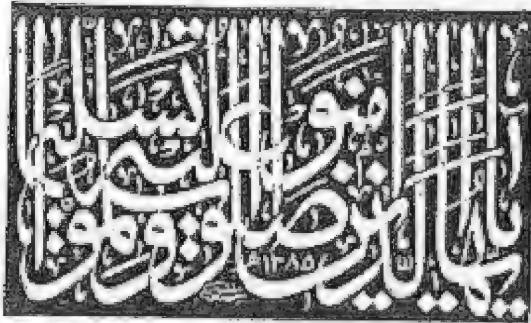 يا أيها الذين آمنوا صلوا عليه وسلموا تسليما